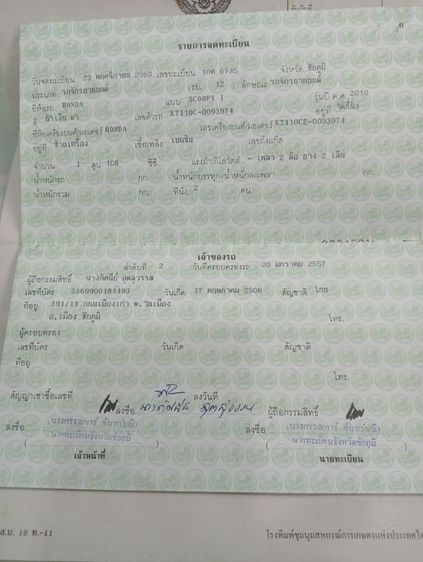 รายการจดทะเบียน
วันจดทะเบียน 23 พฤศจิกายน 2553 เลขทะเบียน 1กศ 6735 จังหวัด ชัยภูมิ
ประเภท รถจักรยานยนต์ (รย. 12 ) ลักษณะ รถจักรยานยนต์
ยี่ห้อรถ HONDA แบบ SCOOPY I รุ่นปี ค.ศ 2010
สี เลขตัวรถ KT110C-0093974 อยู่ที่
ยี่ห้อเครื่องยนต์(มอเตอร์)HONDA เลขเครื่องยนต์(มอเตอร์)KT110CE-0093974
อยู่ที่ เชื้อเพลิง เบนซิน เลขถังแก๊ส
จำนวน 1 สูบ 108 ซีซี แรงม้า/กิโลวัตต์ - เพลา 2 ล้อ ยาง 2 เส้น
น้ำหนักรถ กก. น้ำหนักบรรทุก/น้ำหนักลงเพลา กก.
น้ำหนักรวม กก. ที่นั่ง 2 คน
เจ้าของรถ
ลำดับที่ 2 วันที่ครอบครองรถ 20 มกราคม 2557
ผู้ถือกรรมสิทธิ์
เลขที่บัตร 3369900184493 วันเกิด 17 พฤษภาคม 2506 สัญชาติ ไทย
ที่อยู่ 391/18 ต. ในเมือง
อ. เมือง ชัยภูมิ โทร.
ผู้ครอบครอง
เลขที่บัตร วันเกิด สัญชาติ
ที่อยู่
โทร.
สัญญาเช่าซื้อเลขที่ ลงวันที่
ลงชื่อ ผู้ถือกรรมสิทธิ์
ลงชื่อ ลงชื่อ
นายทะเบียนจังหวัดชัยภูมิ นายทะเบียนจังหวัดชัยภูมิ
เจ้าหน้าที่ นายทะเบียน
ส.บ. 10 ท.-11 โรงพิมพ์ชุมนุมสหกรณ์การเกษตรแห่งประเทศไ